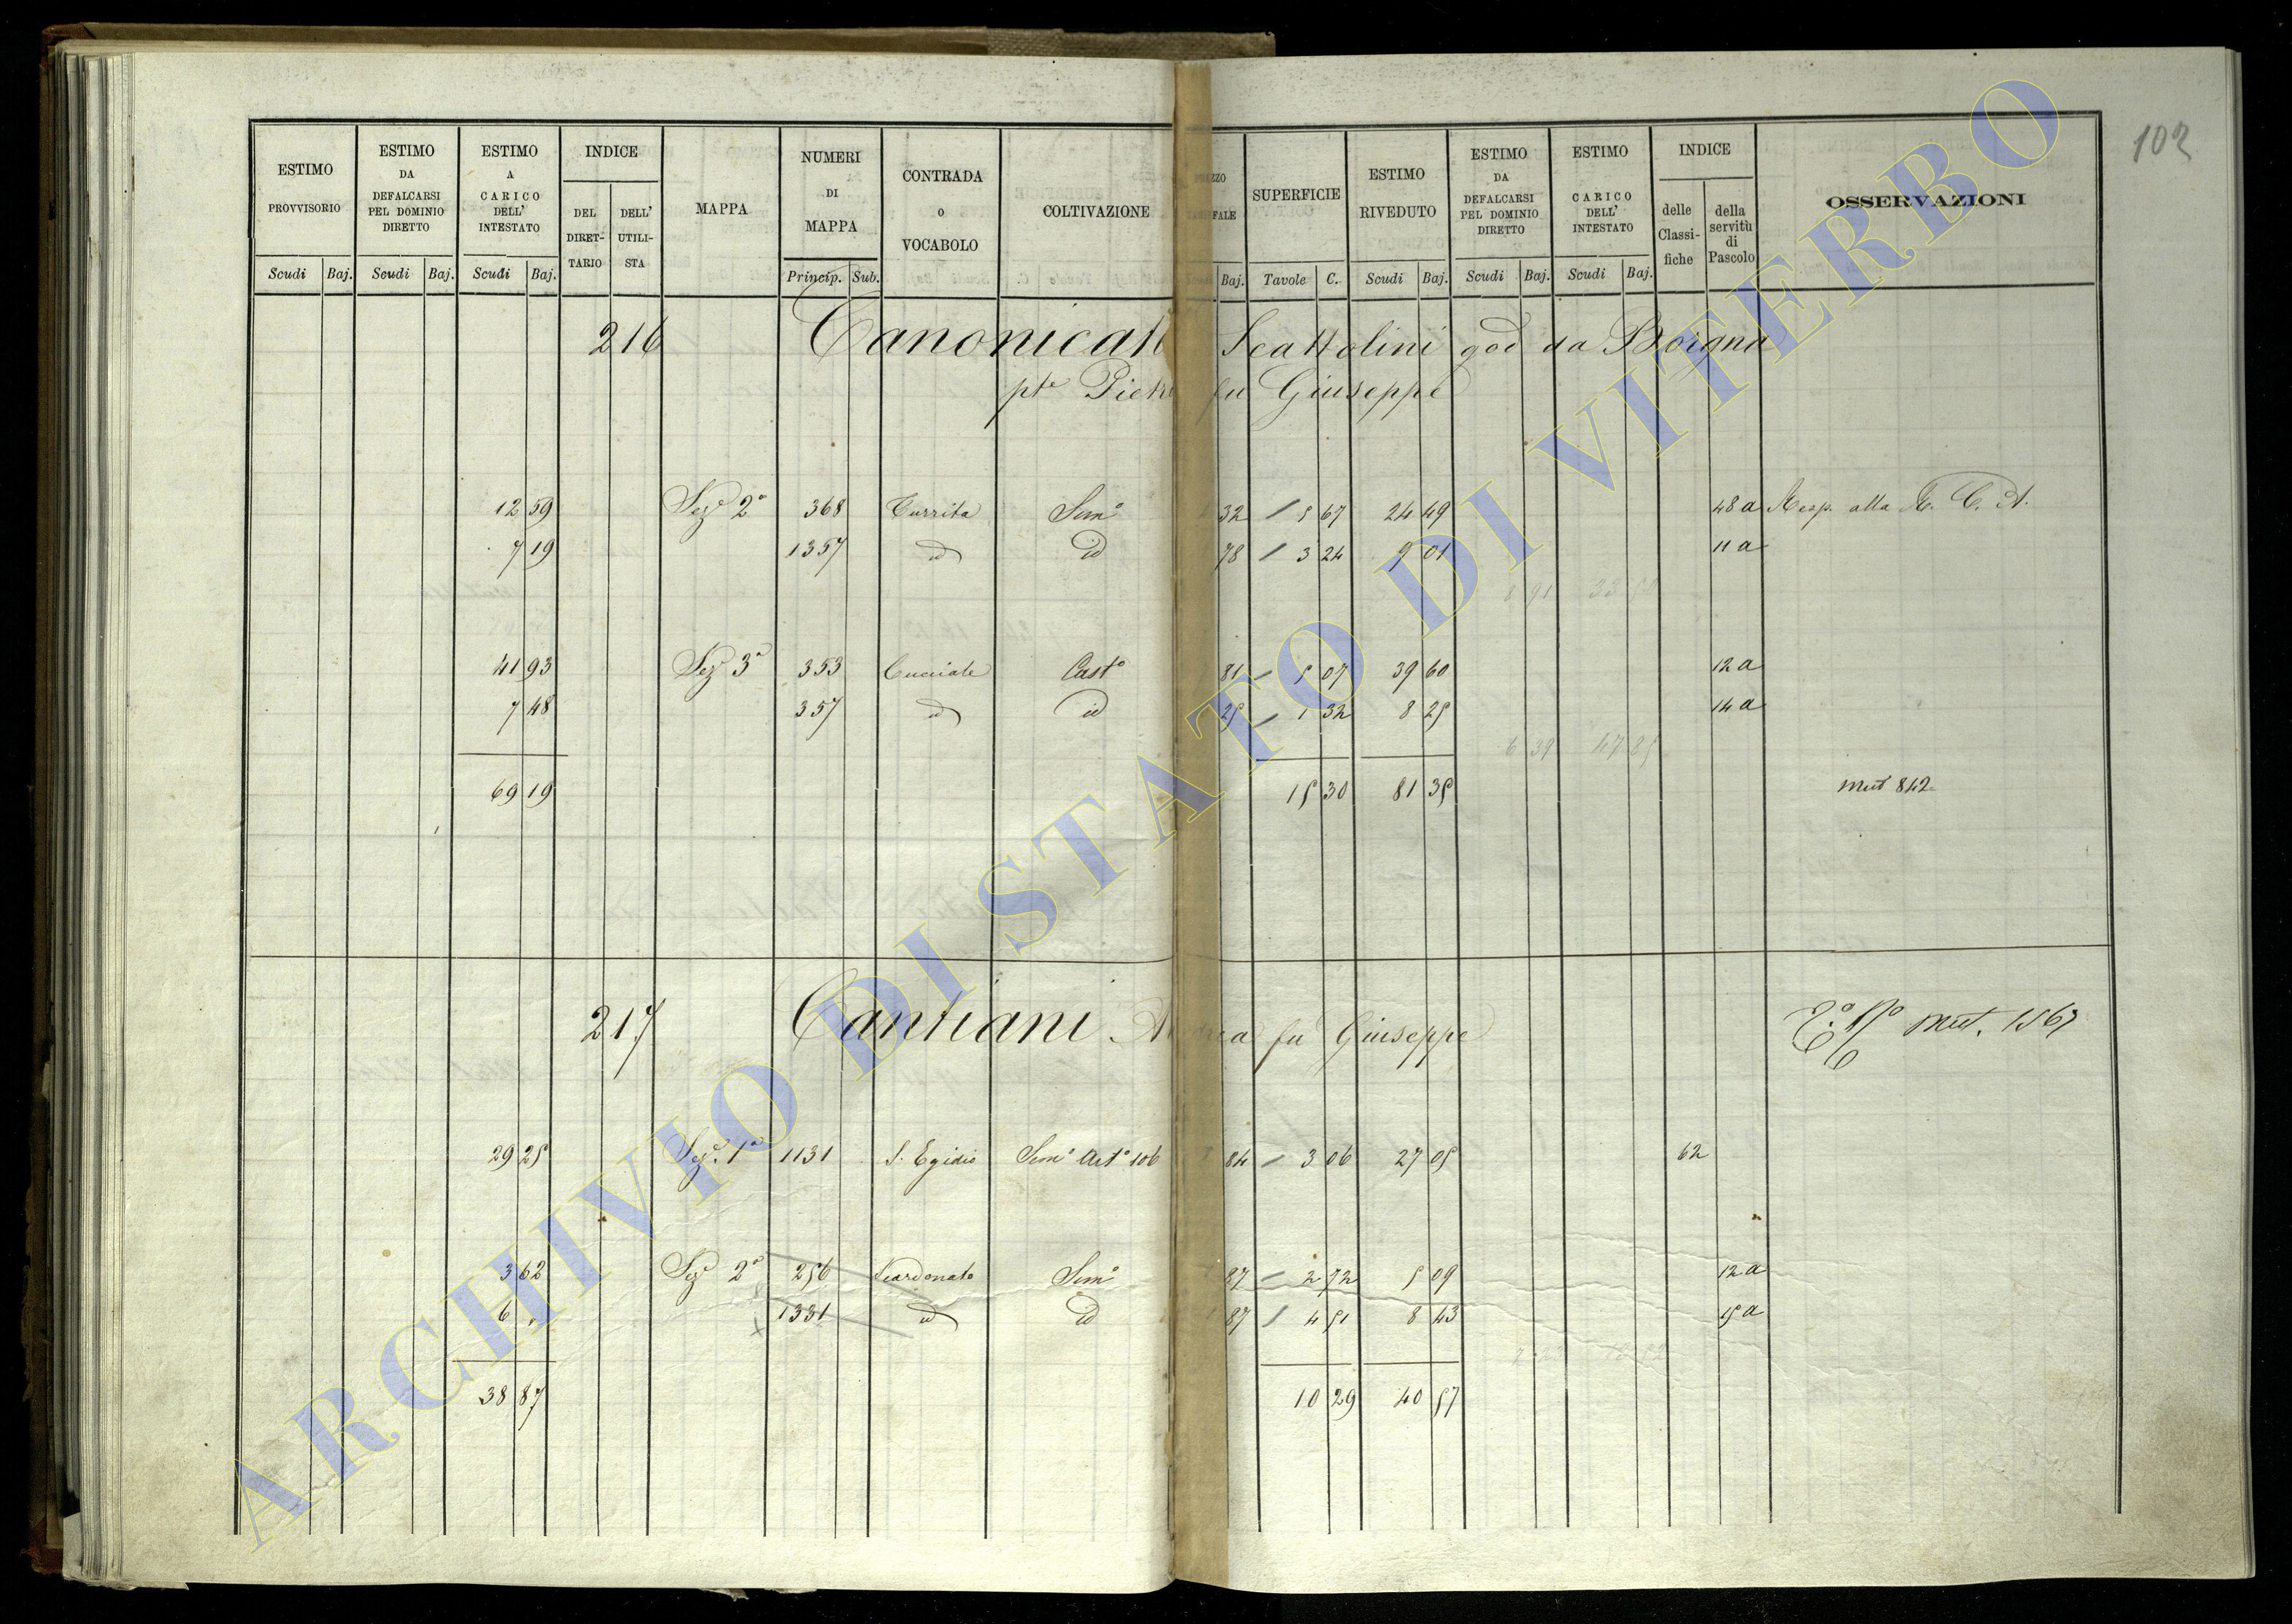 102
ESTIMO PROVVISORIO
ESTIMO DA DEFALCARSI PEL DOMINIO DIRETTO
ESTIMO A CARICO DELL' INTESTATO
INDICE
DEL DIRET-TARIO
DELL' UTILI-STA
MAPPA
NUMERI DI MAPPA
CONTRADA O VOCABOLO
COLTIVAZIONE
SUPERFICIE
ESTIMO RIVEDUTO
ESTIMO DA DEFALCARSI PEL DOMINIO DIRETTO
ESTIMO CARICO DELL' INTESTATO
INDICE
delle Classi-fiche
della servitù di Pascolo
OSSERVAZIONI
Scudi Baj. Scudi Baj. Scudi Baj. Princip. Sub. Baj. Tavole C. Scudi Baj. Scudi Baj. Scudi Baj.
216 Canonicat Scattolini god da
pte Piet fu Giuseppe
12 59 Sez. 2a 368 Currita Sem° 32 5 67 24 49 48 a Resp. alla
7 19 1357 id id 78 3 24 9 01 11 a
8 91 33 50
41 93 Sez 3a 353 Cucciale Cast° 81 5 07 39 60 12 a
7 48 357 id id 25 1 32 8 25 14 a
6 39 47 85
69 19 15 30 81 35 Mut 842
217 Cantiani fu Giuseppe Mut. 1567
29 25 Sez. 1a 1131 S. Egidio Sem° Art° 106 84 3 06 27 05 62
3 62 Sez 2a 256 Scardenato Sem° 87 2 72 5 09 12 a
6 , 1331 id id 87 4 51 8 43 15 a
38 87 10 29 40 57
ARCHIVIO DI STATO DI VITERBO